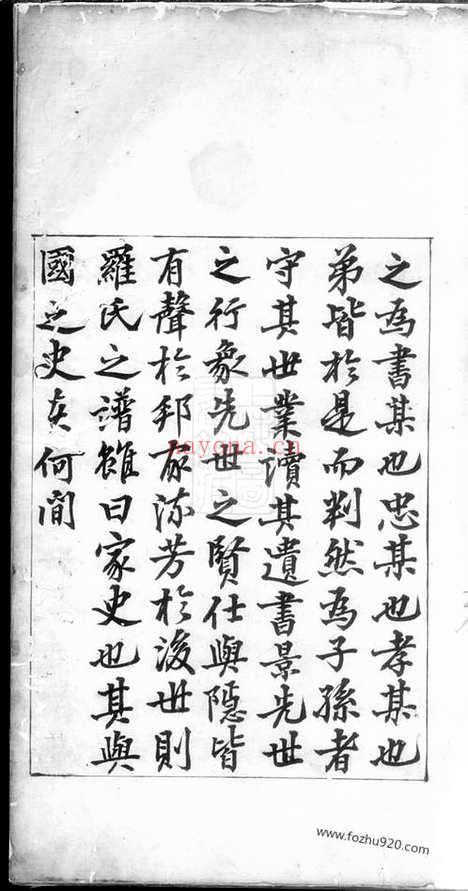 之為書某也忠某也孝某也
弟皆於是而判然為子孫者
守其世業讀其遺書景先世
之行象先世之賢仕與隱皆
有聲於邦家流芳於後世則
羅氏之譜雖曰家史也其與
國之史奚何間
nayona.cn
www.fozhu920.com